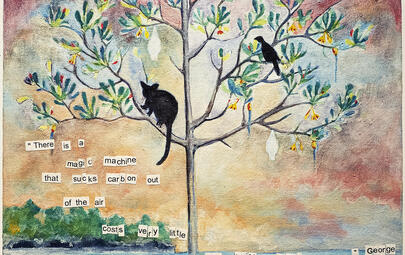 "There is a
magic machine
that sucks carbon out
of the air
costs very little
" George